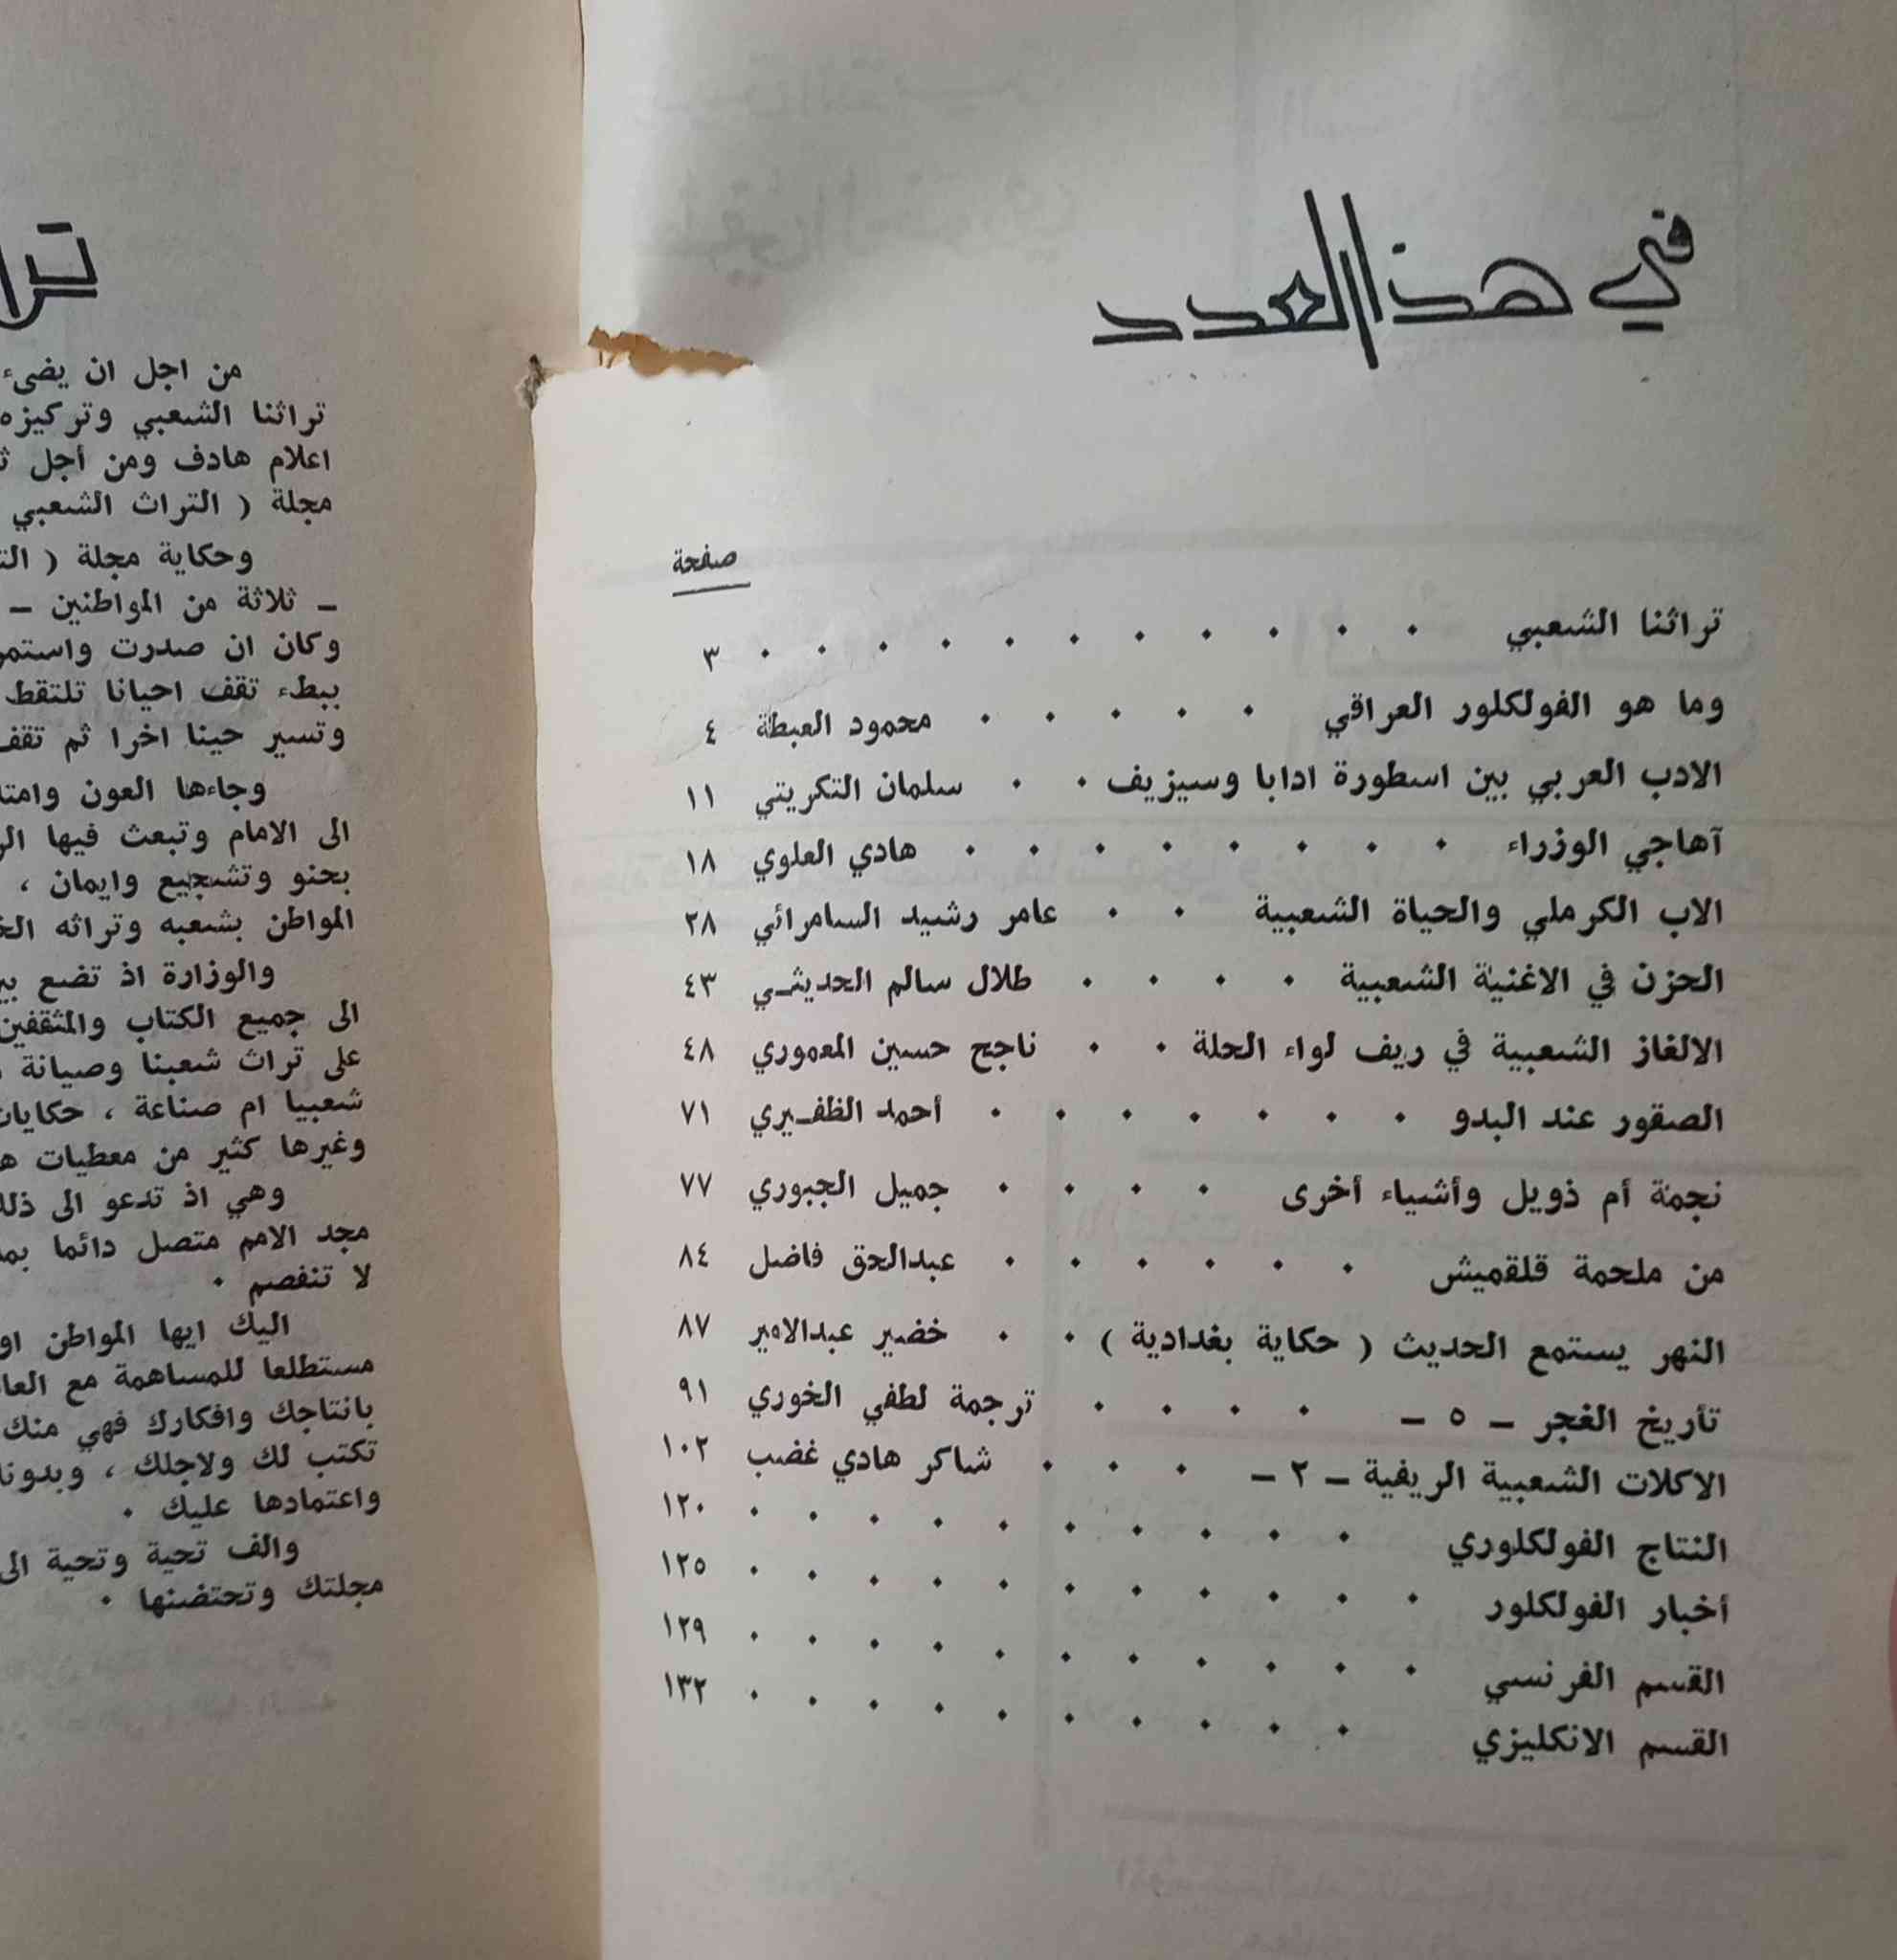 في هذا العدد
صفحة
تراثنا الشعبي . . . . . . . . . . . ٣
وما هو الفولكلور العراقي . . . . . محمود العبطة ٤
الادب العربي بين اسطورة ادابا وسيزيف . . سلمان التكريتي ١١
آهاجي الوزراء . . . . . . . . هادي العلوي ١٨
الاب الكرملي والحياة الشعبية . . عامر رشيد السامرائي ٢٨
الحزن في الاغنية الشعبية . . . . طلال سالم الحديثي ٤٣
الالغاز الشعبية في ريف لواء الحلة . . ناجح حسين المعموري ٤٨
الصقور عند البدو . . . . . . . أحمد الظفيري ٧١
نجمة أم ذويل وأشياء أخرى . . . . جميل الجبوري ٧٧
من ملحمة قلقميش . . . . . . عبدالحق فاضل ٨٤
النهر يستمع الحديث ( حكاية بغدادية ) . . خضير عبدالامير ٨٧
تأريخ الغجر - ٥ - . . . . ترجمة لطفي الخوري ٩١
الاكلات الشعبية الريفية - ٢ - . . . شاكر هادي غضب ١٠٢
النتاج الفولكلوري . . . . . . . . . . ١٢٠
أخبار الفولكلور . . . . . . . . . . . ١٢٥
القسم الفرنسي . . . . . . . . . . . ١٢٩
القسم الانكليزي . . . . . . . . . . ١٣٢
من اجل ان يضيء
تراثنا الشعبي وتركيزه
اعلام هادف ومن أجل
مجلة ( التراث الشعبي
وحكاية مجلة (
- ثلاثة من المواطنين -
وكان ان صدرت واستمر
ببطء تقف احيانا تلتقط
وتسير حينا اخرا ثم تقف
وجاءها العون
الى الامام وتبعث فيها
بحنو وتشجيع وايمان ،
المواطن بشعبه وتراثه
والوزارة اذ تضع
الى جميع الكتاب والمثقفين
على تراث شعبنا وصيانة
شعبيا ام صناعة ،
وغيرها كثير من معطيات
وهي اذ تدعو الى
مجد الامم متصل دائما
لا تنفصم .
اليك ايها المواطن
مستطلعا للمساهمة مع
بانتاجك وافكارك فهي منك
تكتب لك ولاجلك ،
واعتمادها عليك .
والف تحية وتحية الى
مجلتك وتحتضنها .